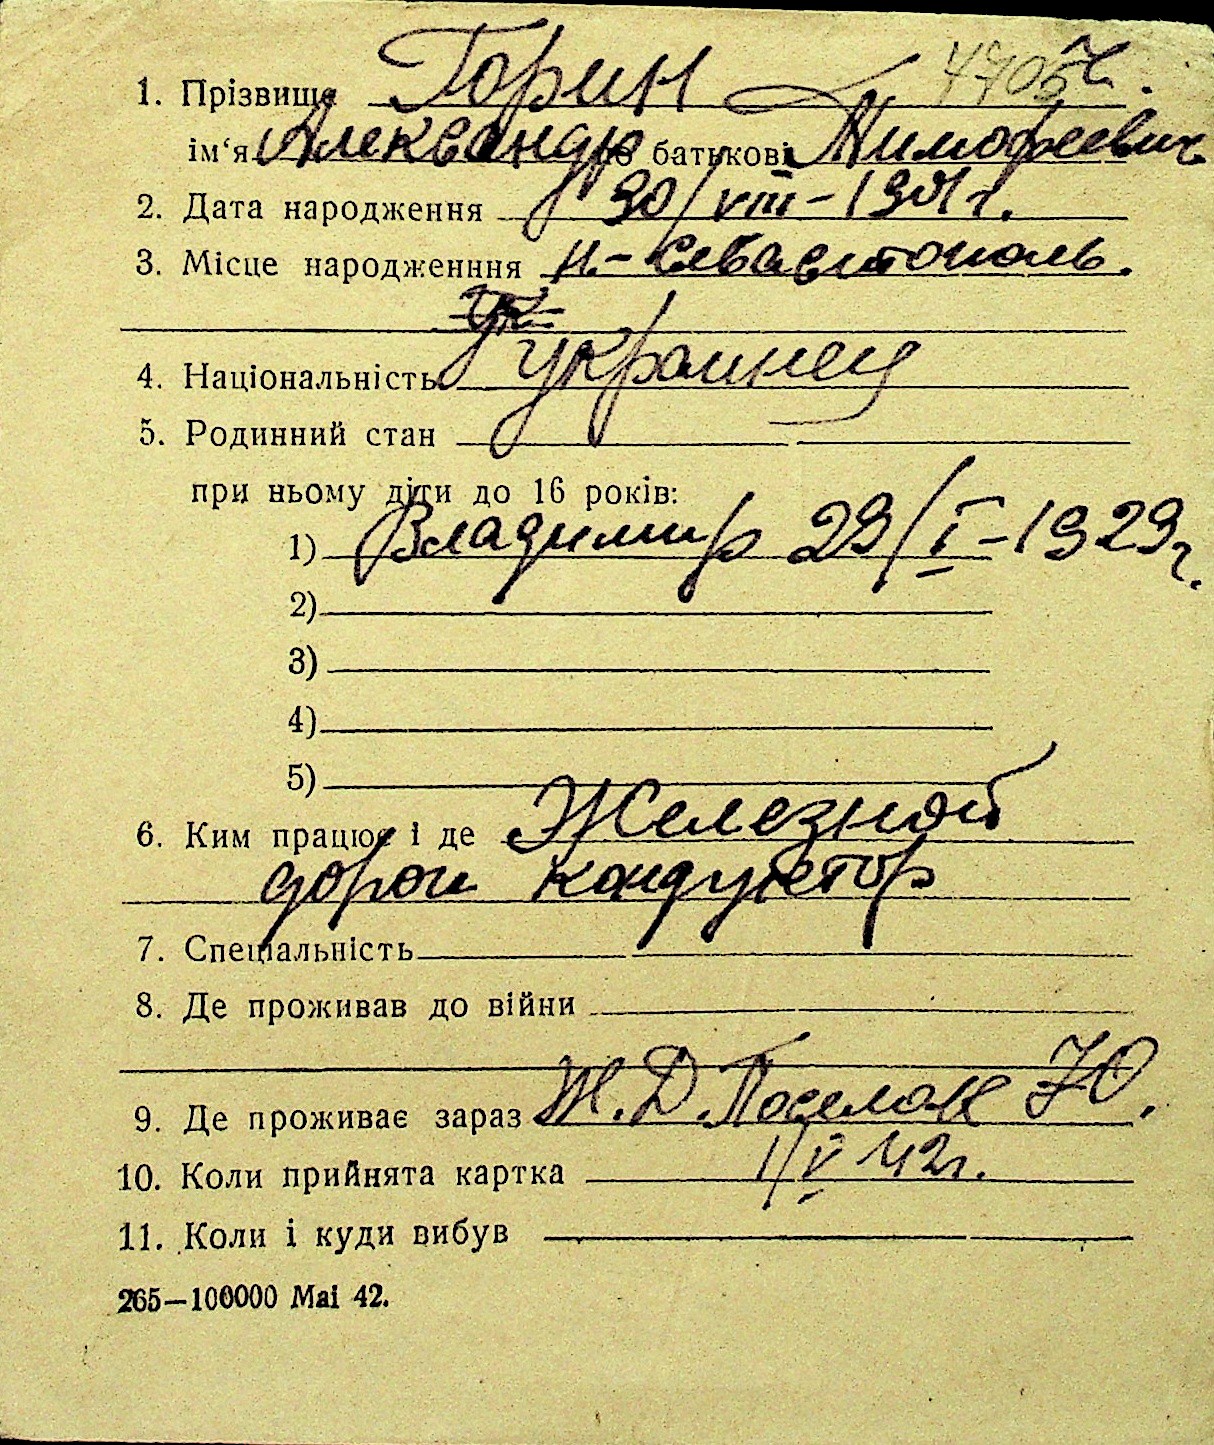 1. Прізвище Горин
ім'я Александр по батькові Тимофеевич
2. Дата народження 30/VIII-1901 г.
3. Місце народженння Н.-Севастополь.
Ук
4. Національність украинец
5. Родинний стан
при ньому діти до 16 років:
1) Владимир 29/I-1929 г.
2)
3)
4)
5)
6. Ким працює і де Железной
дороги кондуктор
7. Спеціальність
8. Де проживав до війни
9. Де проживає зараз Ж.Д. Поселок 70.
10. Коли прийнята картка 1/V 42 г.
11. Коли і куди вибув
265—100000 Mai 42.